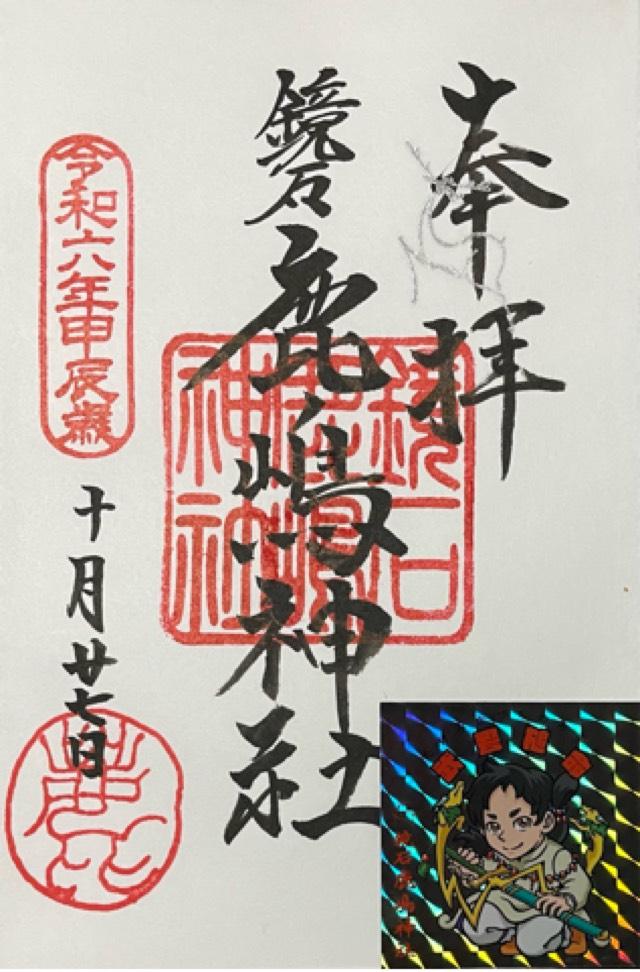 奉拝
鏡石
鹿嶋神社
鏡石
鹿嶋
神社
令和六年甲辰歳
十月廿七日
鏡石鹿嶋神社